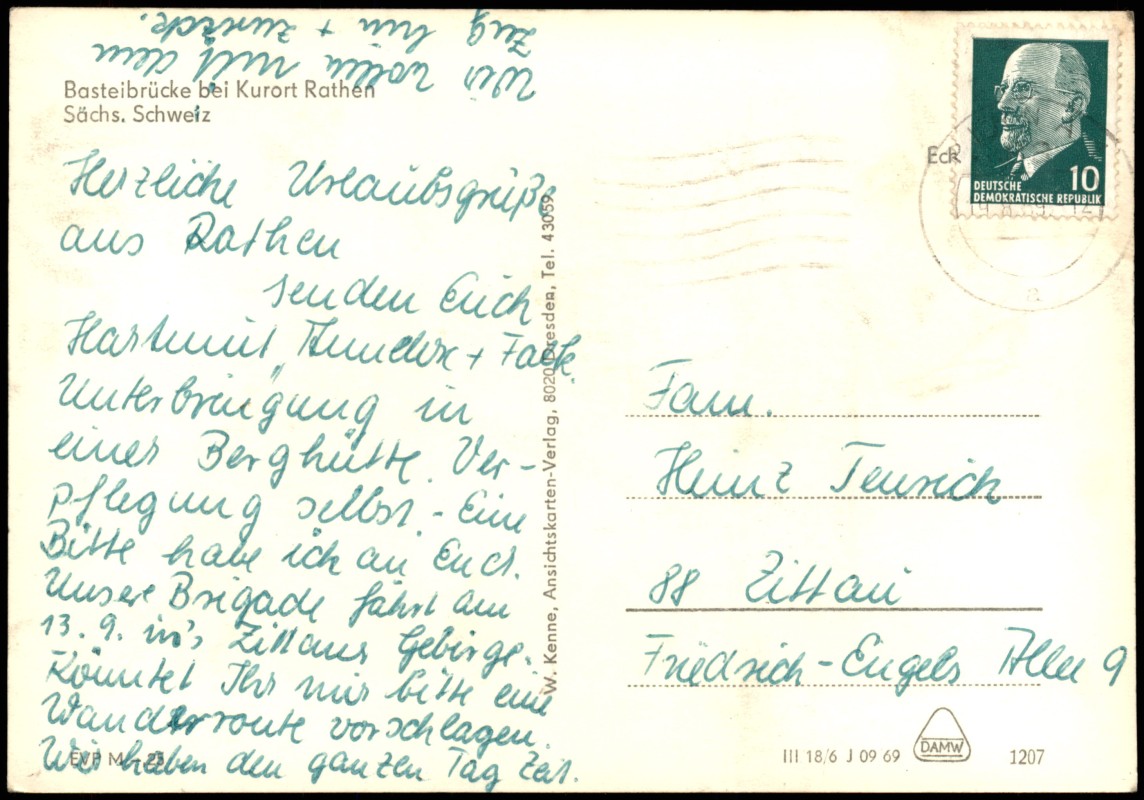 Basteibrücke bei Kurort Rathen
Sächs. Schweiz
Herzliche Urlaubsgrüße
aus Rathen
senden Euch
Hartmut, +
Unterbringung in
einer Berghütte. Ver-
pflegung selbst - Eine
Bitte habe ich an Euch.
Unsere Brigade fährt am
13. 9. in's Zittauer Gebirge.
Könntet Ihr mir bitte eine
Wanderroute vorschlagen.
Wir haben den ganzen Tag Zeit.
Wir wollen mit dem
Zug hin + zurück.
EVP M -.25
W. Kenne, Ansichtskarten-Verlag, 8020 Dresden, Tel. 43059
DEUTSCHE 10
DEMOKRATISCHE REPUBLIK
Fam.
Heinz
88 Zittau
Friedrich-Engels Allee 9
III 18/6 J 09 69
DAMW
1207